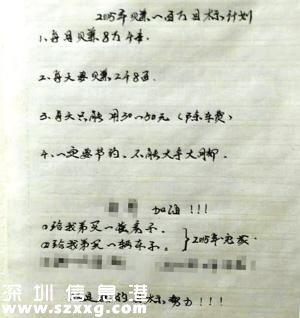 2015年赚一百万目标计划
1、每月赚8万4千.
2、每天要赚248百.
3、每天只能用30~50元(除车费)
4、一定要节约、不能大手大脚.
加油!!!
①给我弟买一栋房子.
②给我弟买一辆车子. }2015年完成
标努力!!!
深圳信息港
www.szxxg.com